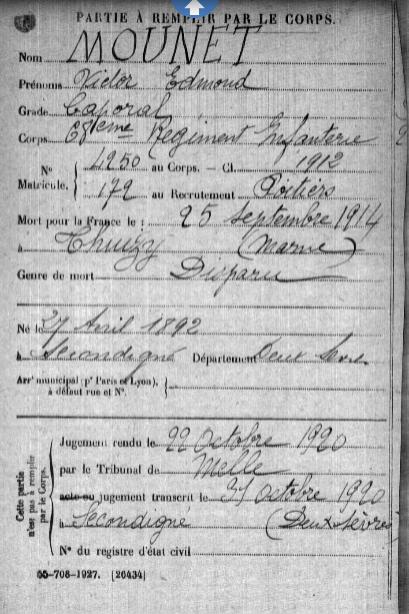 PARTIE À REMPLIR PAR LE CORPS.
Nom MOUNET
Prénoms Victor Edmond
Grade Caporal
Corps 68ème Régiment Infanterie
N° Matricule. { 4250 au Corps. — Cl. 1912
179 au Recrutement Poitiers
Mort pour la France le : 25 septembre 1914
à Thuizy (Marne)
Genre de mort Disparu
Né le 27 Avril 1892
à Secondigné Département Deux Sèvres
Arrt municipal (pr Paris et Lyon), à défaut rue et N°. {
Cette partie n'est pas à remplir par le Corps. {
Jugement rendu le 22 Octobre 1920
par le Tribunal de Melle
acte ou jugement transcrit le 31 octobre 1920
à Secondigné (Deux-Sèvres
N° du registre d'état civil
-708-1927. [26434]